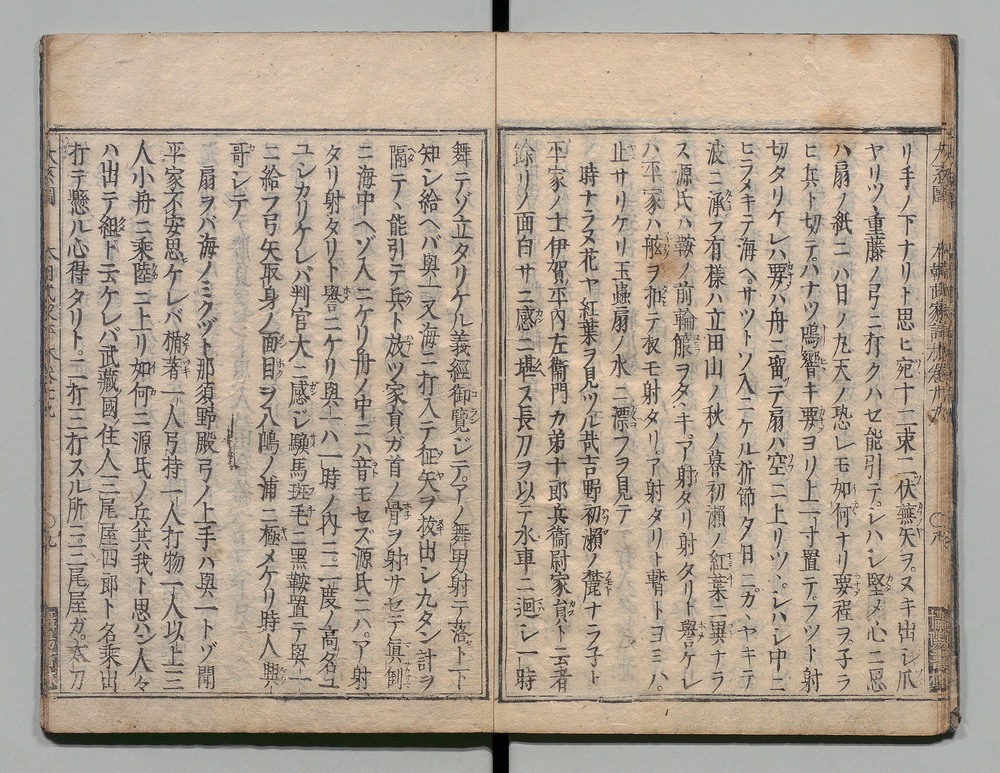 リ手ノ下ナリト思ヒ宛十二束二伏蕪矢ヲヌキ出シ爪
ヤリツヽ重藤ノ弓ニ打クハセ能引テシハシ堅メ心ニ思
ハ扇ノ紙ニハ日ノ九天ノ恐レモ如何ナリ要程ヲ子ラ
ヒ兵ト切テハナツ鳴響キ要ヨリ上一寸置テフツト射
切タリケレハ要ハ舟ニ留テ扇ハ空ニ上リツヽシハシ中ニ
ヒラメキテ海ヘサツトソ入ニケル折節夕日ニカヽヤキテ
波ニ漂ヲ有様ハ立田山ノ秋ノ暮初瀬ノ紅葉ニ異ナラ
ス源氏ハ鞍ノ前輪箙ヲタヽキア射タリ射タリト譽ケレ
ハ平家ハ舷ヲ扣テ女モ男モア射タリア射タリト
止サリケリ玉蟲扇ノ水ニ漂フヲ見テ
時ナラヌ花ヤ紅葉ヲ見ツル哉吉野初瀬ノ麓ナラ子ト
平家ノ士伊賀平内左衛門カ弟十郎兵衛尉家員ト云者
餘リノ面白サニ感ニ堪ス長刀ヲ以テ水車ニ迴シ一時
舞テゾ立タリケル義經御覧ジテアノ舞男射テ落ト下
知シ給ヘバ與一又海ニ打入テ征矢ヲ抜出シ九タン計ヲ
隔テヽ能引テ兵ト放ツ家員ガ首ノ骨ヲ射サセテ真倒
ニ海中ヘゾ入ニケリ舟ノ中ニハ音モセズ源氏ニハア射
タリ射タリト譽ニケリ與一ハ一時ノ内ニ二度ノ高名ユ
ユシカリケレバ判官大ニ感ジ馬ニ黒鞍置テ與一
ニ給フ弓矢取身ノ面目ヲ八嶋ノ浦ニ極メケリ時人與
哥シテ
扇ヲバ海ノミクヅト那須野殿弓ノ上手ハ與一トゾ聞
平家不安思ケレバ楯著一人弓持一人打物一人以上三
人小舟ニ乗陸ニ上リ如何ニ源氏ノ兵共我ト思ハン人々
ハ出テ組ト云ケレバ武藏國ノ住人三尾屋四郎ト名乗出
打テ懸ル心得タリト一打二打スル所ニ三尾屋ガ太刀